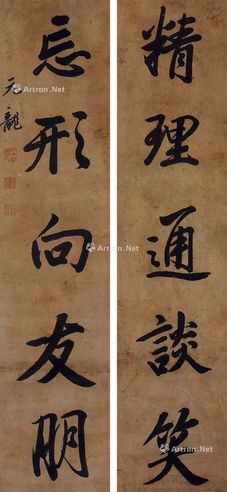 精理通談笑
忘形向友朋
元龍
Artron.Net
Artron.Net
Artron.Net
Artron.Net